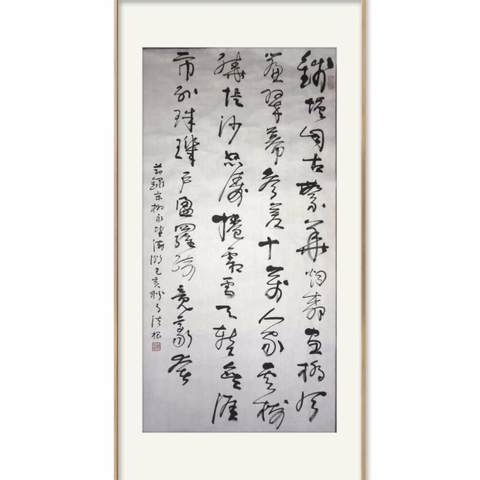 錢塘自古繁華烟柳畫橋風
簾翠幕參差十萬人家雲樹
繞堤沙怒濤捲霜雪天塹無涯
市列珠璣户盈羅綺競豪奢
節錄宋柳永望海潮己亥秋月